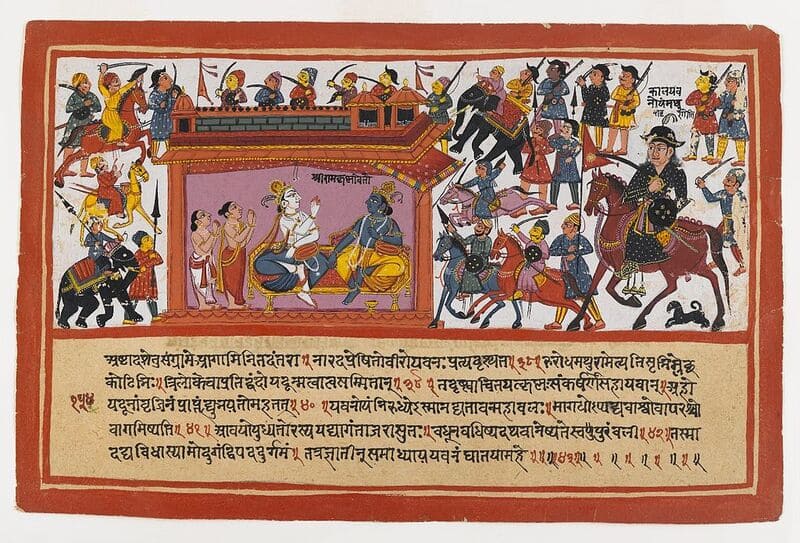 कालयव
श्रीरामकृष्णौ
अष्टादशेतुसंग्रामेआगामिनितदंतरा॥ नारदप्रेषितोवीरोयवनःप्रत्यदृश्यत॥३८॥ रुरोधमथुरामेत्यतिसृभिर्म्लेछ
कोटिभिः॥त्रिलोकेचाप्रतिद्वंदोयदून्श्रुत्वात्मसम्मितान्॥३९॥ तंदृष्ट्वाचिंतयत्कृष्णःसंकर्षणसहायवान्॥अहो
यदूनांवृजिनंप्राप्तंह्युभयतोमहत्॥४०॥ यवनोयंनिरुंधेऽस्मानद्यतावन्महाबलः॥मागधोप्यद्यवाश्वोवापरश्वो
वागमिष्यति॥४१॥ आवयोर्युध्यतोरस्ययद्यागंताजरासुतः॥बंधून्वधिष्यत्यथवानेष्यतेस्वपुरंबली॥४२॥तस्मा
दद्यविधास्यामोदुर्गंद्विपददुर्गमं॥ तत्रज्ञातीन्समाधाययवनंघातयामहे॥४३॥